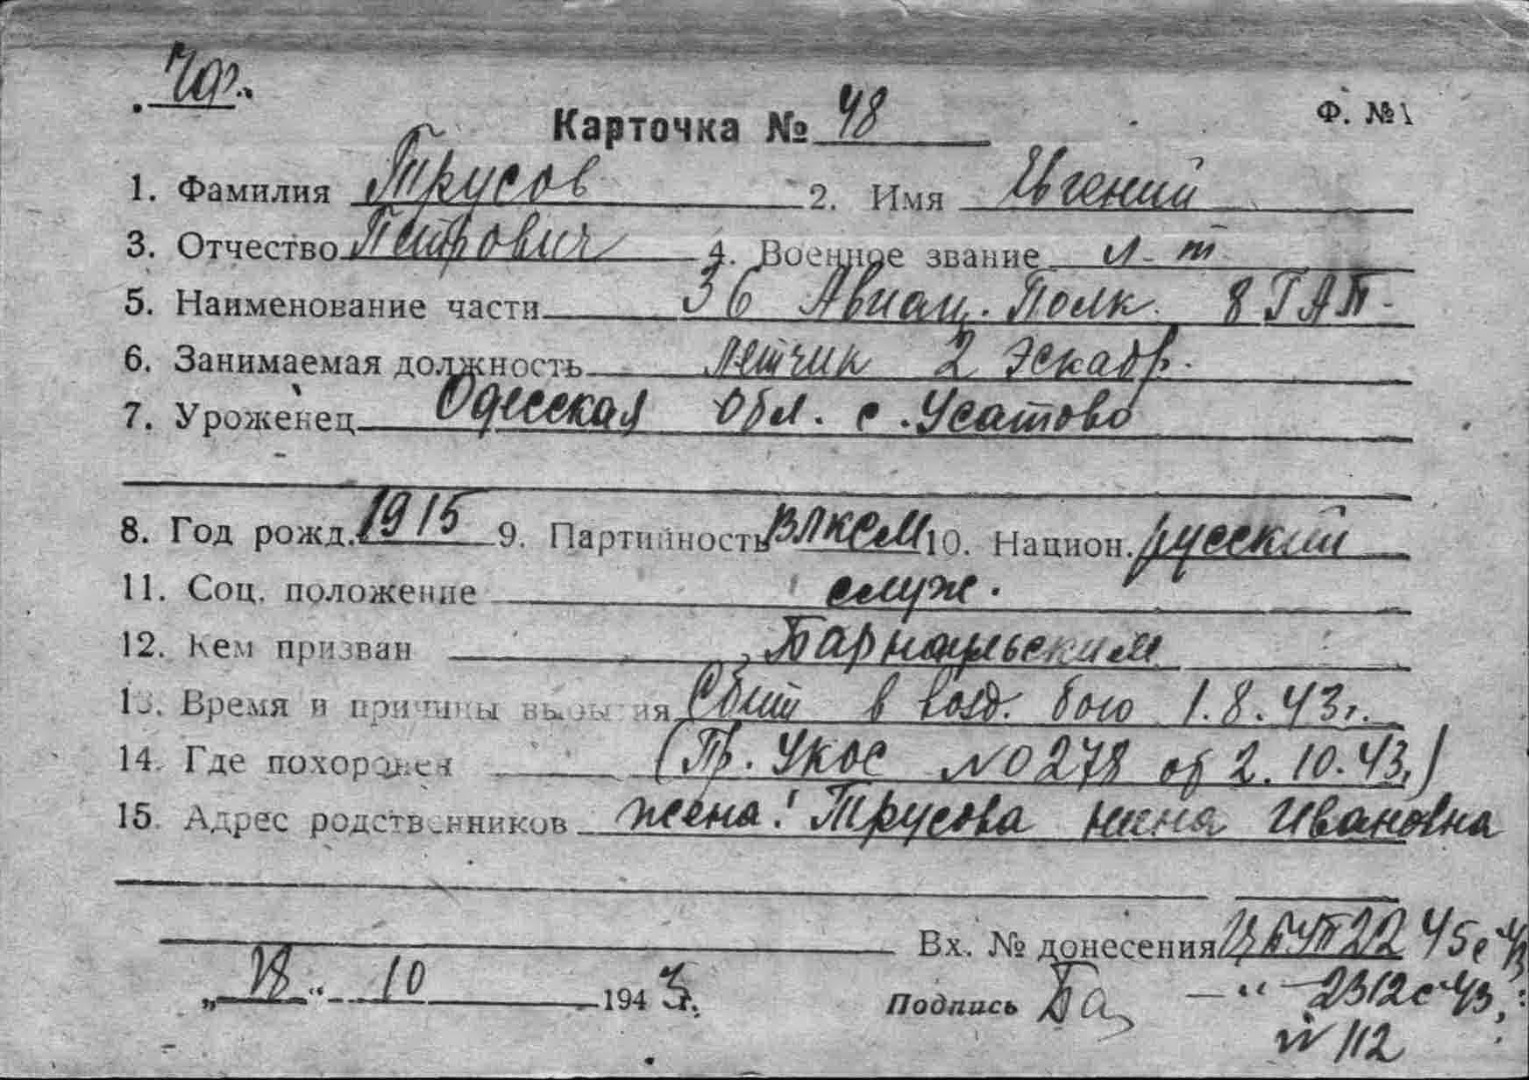 Карточка № 48 Ф. №1
1. Фамилия Трусов 2. Имя Евгений
3. Отчество Петрович 4. Военное звание л-т
5. Наименование части 36 Авиац. Полк. 8 ГАП-
6. Занимаемая должность летчик 2 эскадр.
7. Уроженец Одесская обл. с. Усатово
8. Год рожд. 1915 9. Партийность ВЛКСМ 10. Национ. русский
11. Соц. положение служ.
12. Кем призван Барнаульским
13. Время и причины выбытия Сбит в возд. бою 1.8.43г.
14. Где похоронен (Пр. Укос №0278 от 2.10.43.)
15. Адрес родственников жена: Трусова Нина Ивановна
Вх. № донесения 2245с 43
„ “ 10 1943г. Подпись Ба — “ — 2312с 43,
№ 112